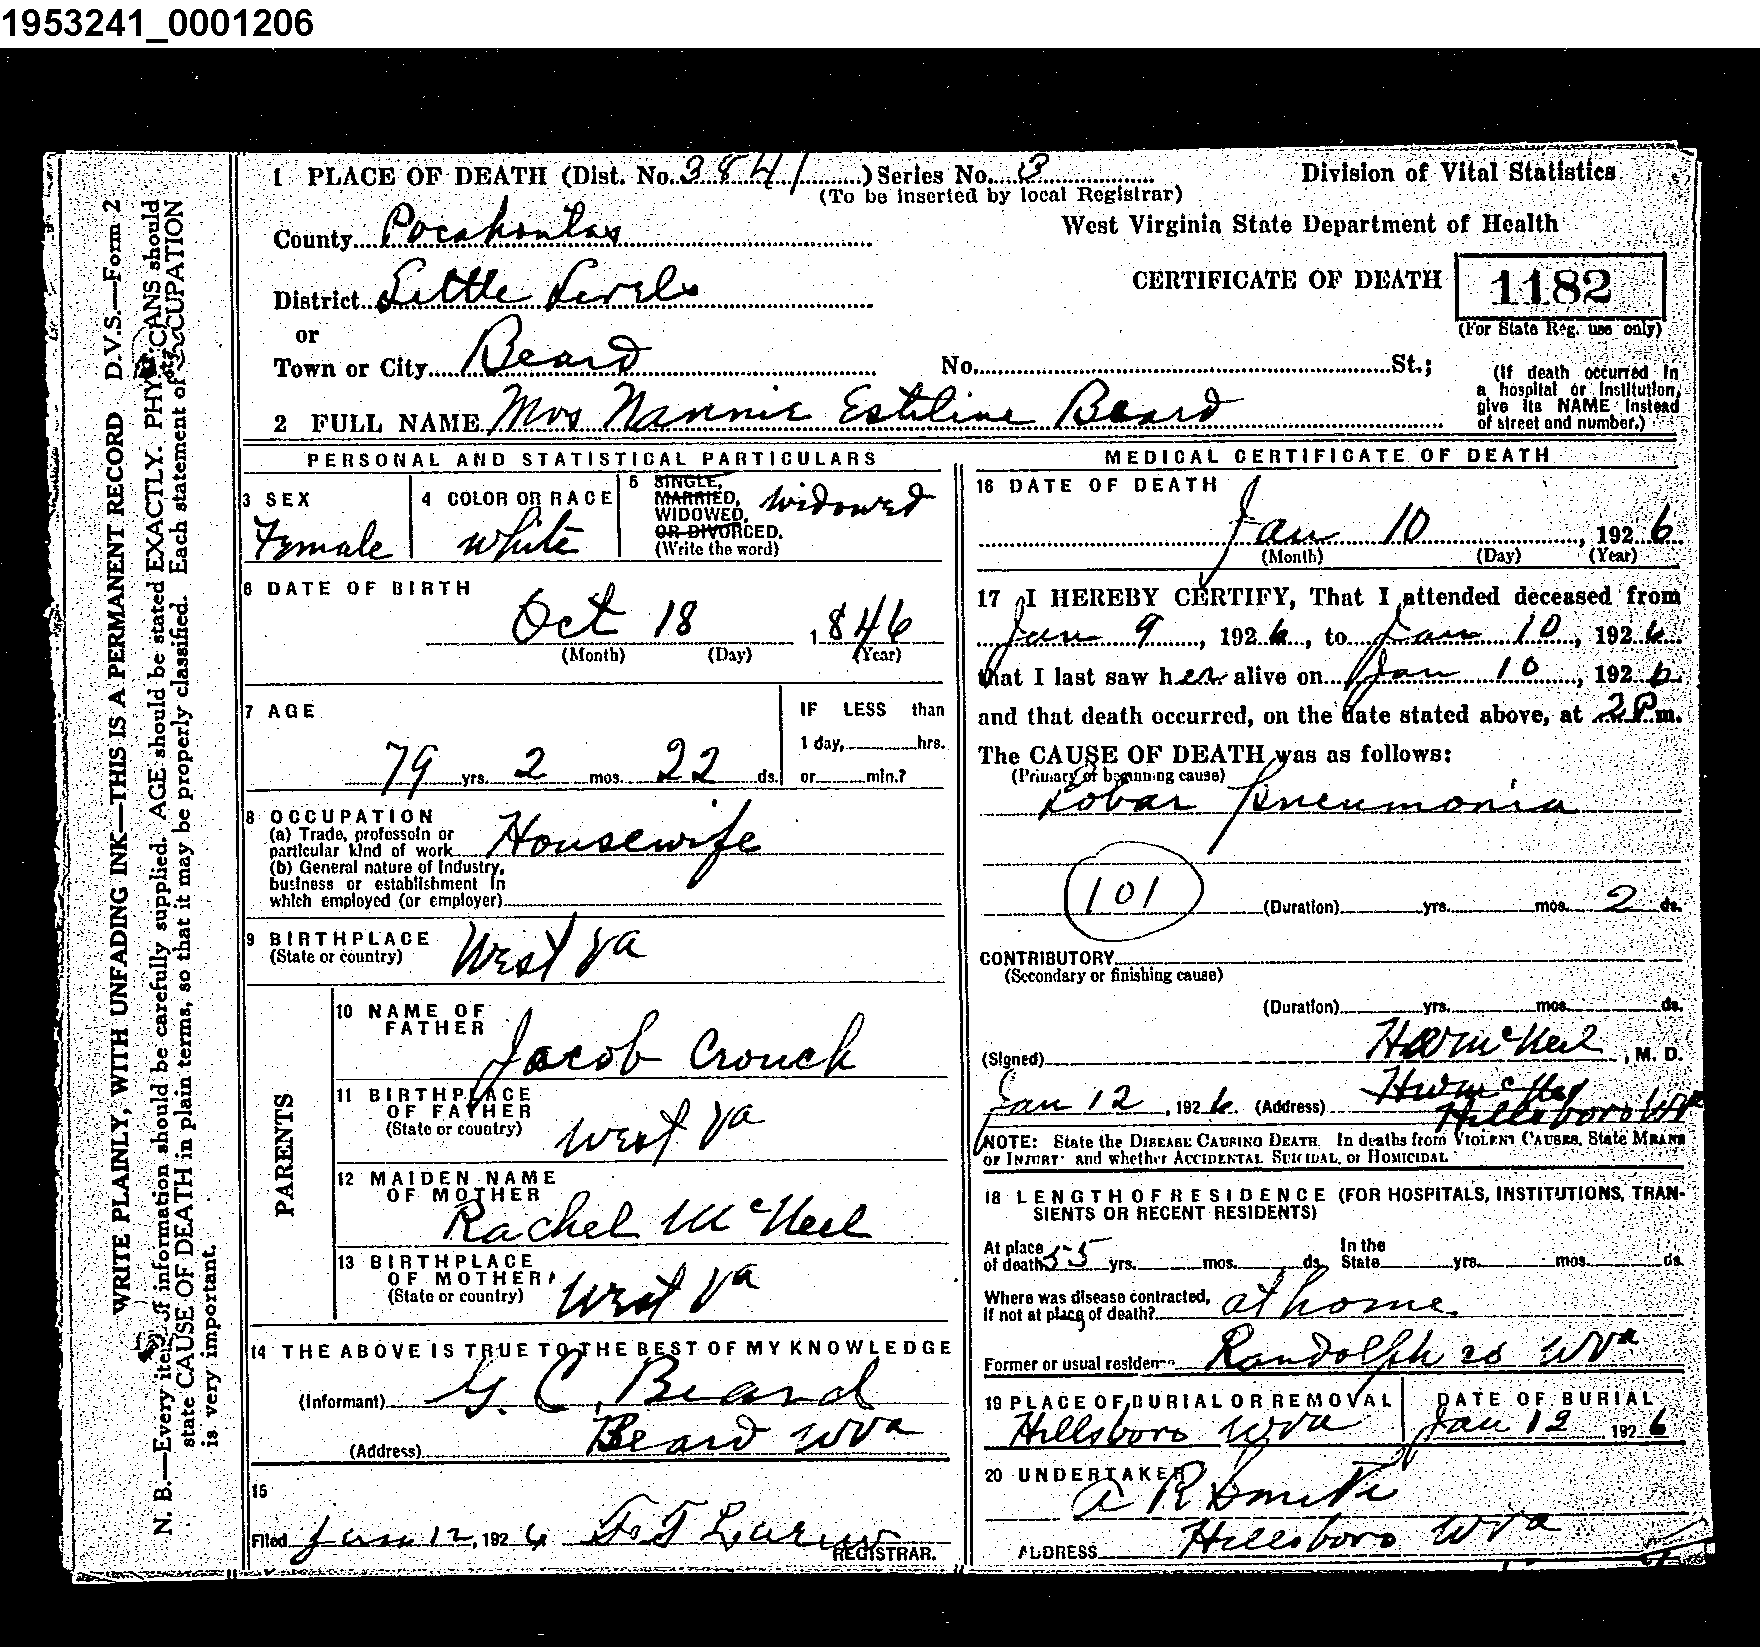 1953241_0001206
1 PLACE OF DEATH (Dist. No. 3841) Series No. 3
(To be inserted by local Registrar)
County Pocahontas
District Little Levels
or
Town or City Beard
2 FULL NAME Mrs Nannie Esteline Beard
Division of Vital Statistics
West Virginia State Department of Health
CERTIFICATE OF DEATH
1182
(For State Reg. use only)
No. St.;
(If death occurred in
a hospital or institution,
give its NAME instead
of street and number.)
PERSONAL AND STATISTICAL PARTICULARS
3 SEX
Female
4 COLOR OR RACE
white
5 SINGLE,
MARRIED,
WIDOWED,
OR DIVORCED.
(Write the word)
widowed
6 DATE OF BIRTH
Oct 18 1846
(Month) (Day) (Year)
7 AGE
79 yrs. 2 mos. 22 ds.
IF LESS than
1 day, hrs.
or min.?
8 OCCUPATION
(a) Trade, professoin or
particular kind of work Housewife
(b) General nature of Industry,
business or establishment in
which employed (or employer)
9 BIRTHPLACE
(State or country)
West Va
PARENTS
10 NAME OF
FATHER
Jacob Crouch
11 BIRTHPLACE
OF FATHER
(State or country)
West Va
12 MAIDEN NAME
OF MOTHER
Rachel McNeel
13 BIRTHPLACE
OF MOTHER
(State or country)
West Va
14 THE ABOVE IS TRUE TO THE BEST OF MY KNOWLEDGE
(Informant) G. C. Beard
(Address) Beard W Va
15
Filed Jan 12, 1926
REGISTRAR.
MEDICAL CERTIFICATE OF DEATH
16 DATE OF DEATH
Jan 10, 1926
(Month) (Day) (Year)
17 I HEREBY CERTIFY, That I attended deceased from
Jan 9, 1926, to Jan 10, 1926
that I last saw her alive on Jan 10, 1926
and that death occurred, on the date stated above, at 2 P m.
The CAUSE OF DEATH was as follows:
(Primary of beginning cause)
Lobar Pneumonia
101
(Duration) yrs. mos. 2 ds.
CONTRIBUTORY
(Secondary or finishing cause)
(Duration) yrs. mos. ds.
(Signed) H W McNeel, M. D.
Jan 12, 1926. (Address) H W McNeel
Hillsboro W Va
NOTE: State the DISEASE CAUSING DEATH. In deaths from VIOLENT CAUSES, State MEANS
OF INJURY and whether ACCIDENTAL SUICIDAL, or HOMICIDAL
18 LENGTH OF RESIDENCE (FOR HOSPITALS, INSTITUTIONS, TRAN-
SIENTS OR RECENT RESIDENTS)
At place
of death 55 yrs. mos. ds.
In the
State yrs. mos. ds.
Where was disease contracted,
if not at place of death? at home
Former or usual residence Randolph co W Va
19 PLACE OF BURIAL OR REMOVAL
Hillsboro W Va
DATE OF BURIAL
Jan 12 1926
20 UNDERTAKER
A R Smith
ADDRESS Hillsboro W Va
WRITE PLAINLY, WITH UNFADING INK—THIS IS A PERMANENT RECORD D.V.S.—Form 2
N. B.—Every item of information should be carefully supplied. AGE should be stated EXACTLY. PHYSICIANS should
state CAUSE OF DEATH in plain terms, so that it may be properly classified. Each statement of OCCUPATION
is very important.